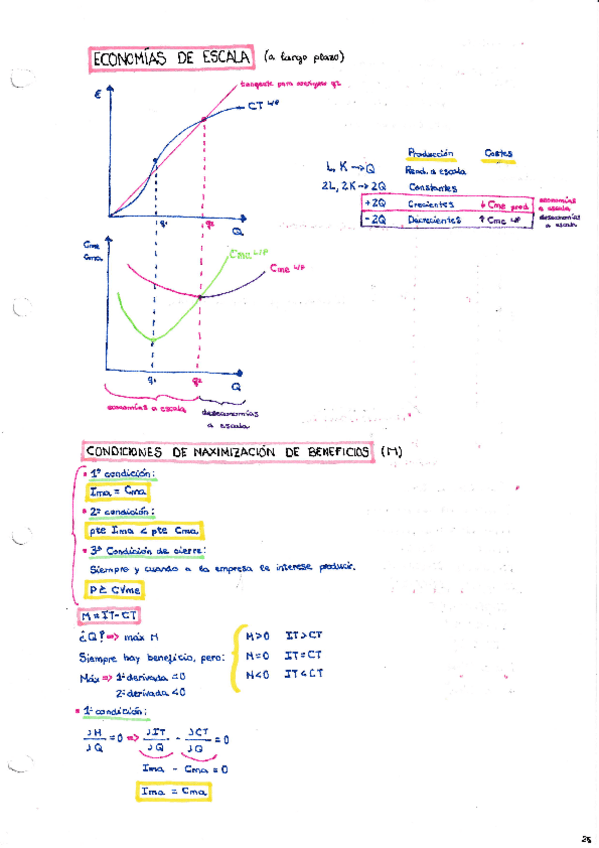 ECONOMÍAS DE ESCALA (a largo plazo)
€
tangente para averiguar q2
CT LP
q1
q2
Q
Producción Costes
L, K → Q Rend. a escala
2L, 2K → 2Q Constantes
+2Q Crecientes ↓ Cme prod. economías a escala
-2Q Decrecientes ↑ Cme LP deseconomías a escala
Cme
Cma
Cme LP
q1
q2
Q
economías a escala
deseconomías a escala
CONDICIONES DE MAXIMIZACIÓN DE BENEFICIOS (M)
1ª condición:
Ima = Cma
2ª condición:
pte Ima < pte Cma
3ª Condición de cierre:
Siempre y cuando a la empresa le interese producir.
P ≥ CVme
M = IT - CT
¿Q? ⇒ máx M
Siempre hay beneficio, pero:
M>0 IT>CT
M=0 IT=CT
M<0 IT<CT
Máx ⇒ 1ª derivada = 0
2ª derivada < 0
1ª condición:
∂M/∂Q = 0 ⇒ ∂IT/∂Q - ∂CT/∂Q = 0
Ima - Cma = 0
Ima = Cma